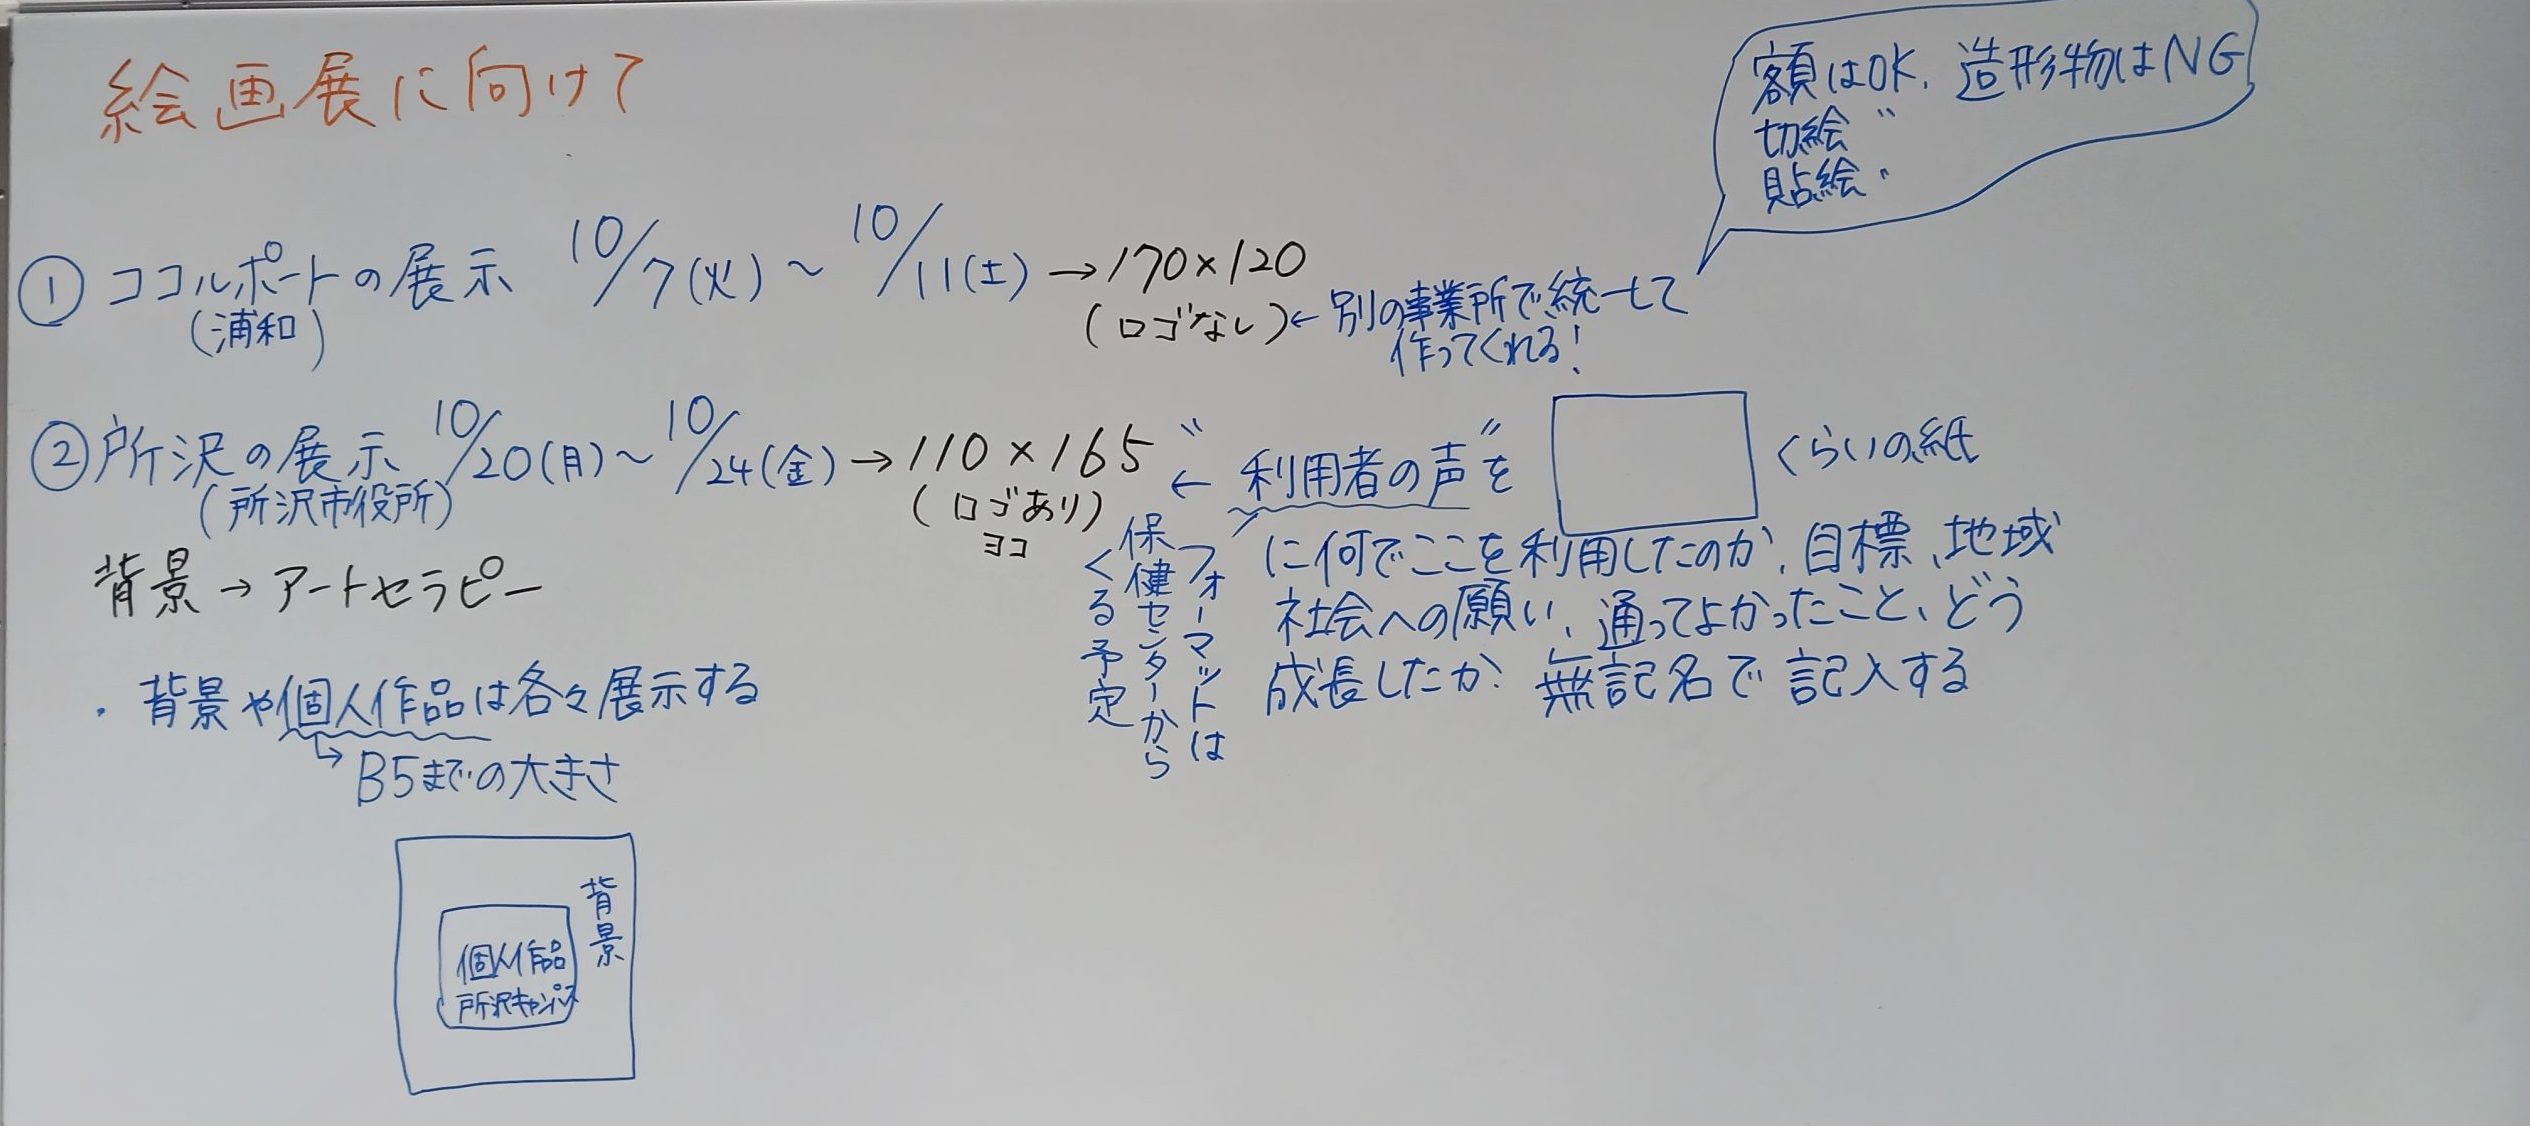 絵画展に向けて
額はOK、造形物はNG
切絵 〃
貼絵 〃
① ココルポートの展示 10/7(火)~10/11(土)→170×120
(浦和)
(ロゴなし)←別の事業所で統一して
作ってくれる!
②所沢の展示 10/20(月)~10/24(金)→110×165
(所沢市役所)
(ロゴあり)
ヨコ
← "利用者の声"を くらいの紙
に何でここを利用したのか、目標、地域
社会への願い、通ってよかったこと、どう
成長したか? 無記名で記入する
フォーマットは
保健センターから
くる予定
背景→アートセラピー
・背景や個人作品は各々展示する
↳B5までの大きさ
背景
個人作品
所沢キャンパス